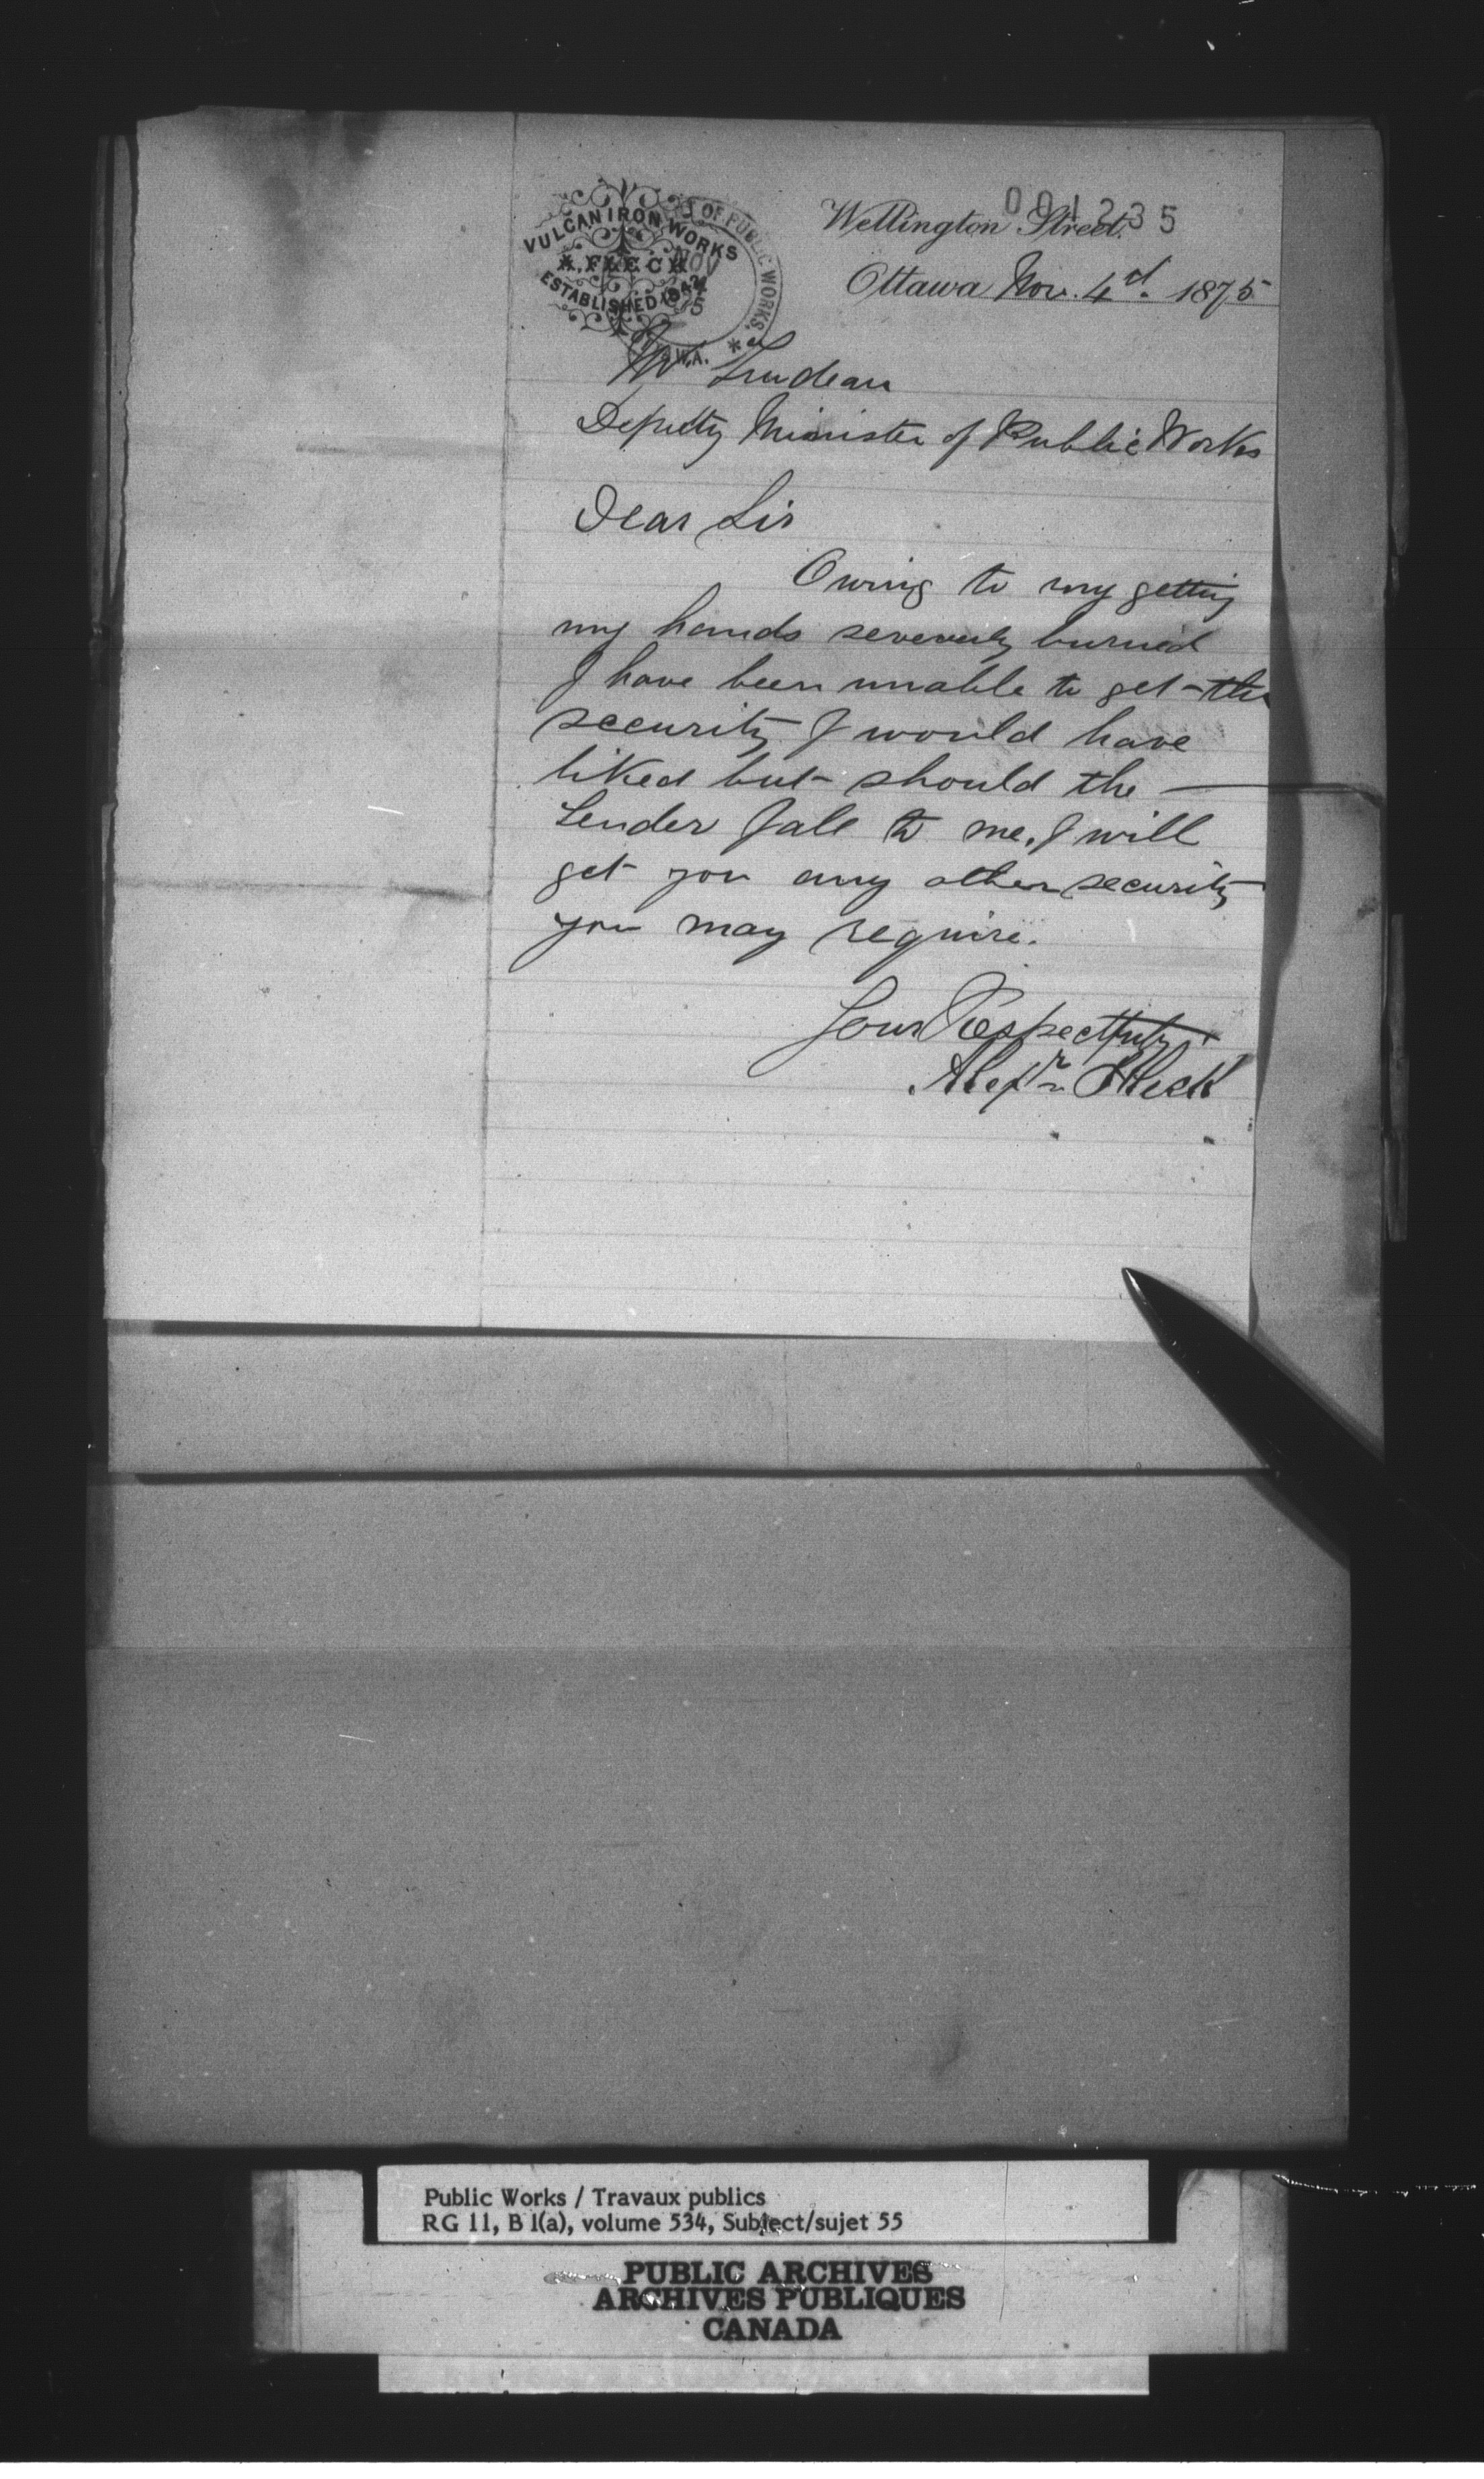 001235
VULCAN IRON WORKS
A. FLECK
ESTABLISHED 1842
OF PUBLIC WORKS.
NOV
4
75
Wellington Street.
Ottawa Nov. 4d. 1875
Mr Trudeau
Deputty Minister of Public Works
Dear Sir
Owing to my getting
my hands severely burned
I have been unable to get the
security I would have
liked but should the
Tender fall to me, I will
get you any other security
you may require.
Your Respectfuly
Alexr Fleck
Public Works / Travaux publics
RG 11, B 1(a), volume 534, Subject/sujet 55
PUBLIC ARCHIVES
ARCHIVES PUBLIQUES
CANADA